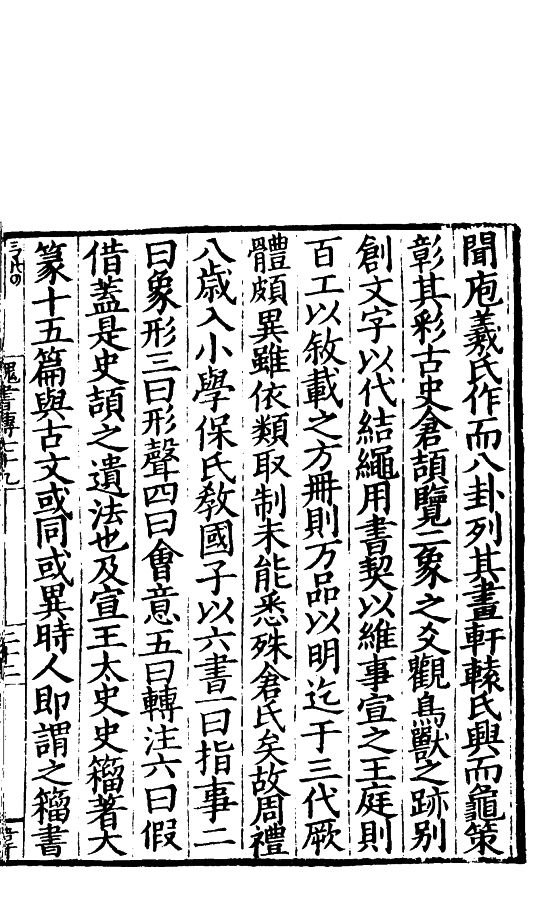 聞庖羲氏作而八卦列其畫軒轅氏興而龜策
彰其彩古史倉頡覽二象之爻觀鳥獸之跡别
創文字以代結繩用書契以維事宣之王庭則
百工以敘載之方冊則万品以明迄于三代厥
體頗異雖依類取制未能悉殊倉氏矣故周禮
八歳入小學保氏教國子以六書一曰指事二
曰象形三曰形聲四曰會意五曰轉注六曰假
借蓋是史頡之遺法也及宣王太史史籀著大
篆十五篇與古文或同或異時人即謂之籀書
魏書傳七十九
二十二